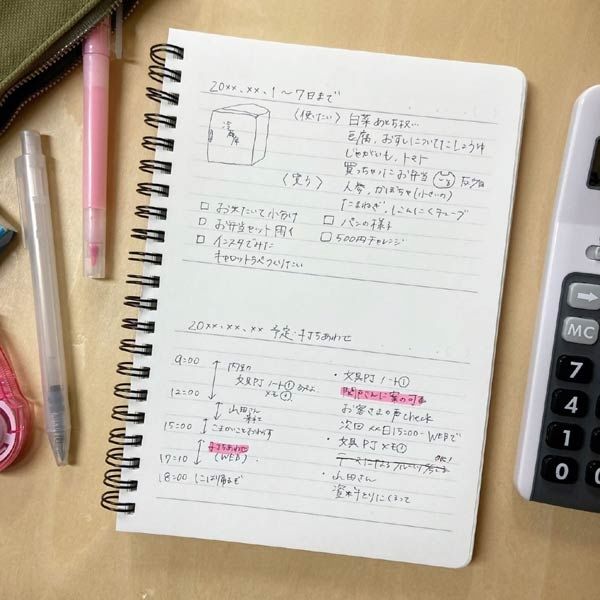 20××.××.1〜7日まで
冷蔵庫
〈使いたい〉 白菜あと1/4
豆腐、おすしについてたしょうゆ
じゃがいも、トマト
買っちゃったお弁当
〈買う〉
人参、かぼちゃ(小さいの)
たまねぎ、にんにくチューブ
□ お米たいて小分け
□ お弁当セット用イ
□ インスタでみた
キャロットラペつくりたい
□ パンの様子
□ 500円チャレンジ
20××.××.×× 予定・打ちあわせ
9:00
内業
文具PJ ノート①
メモ
12:00
山田さん
15:00
こまかいこと
打ちあわせ
(WEB)
17:10
18:00
・文具PJ ノート①
関戸さんに案の
お客さまの声check
次回 ××日15:00〜WEBで
・文具PJ メモ①
・山田さん
資料とりにくるって
MC
7
4
1
0
8
5
2